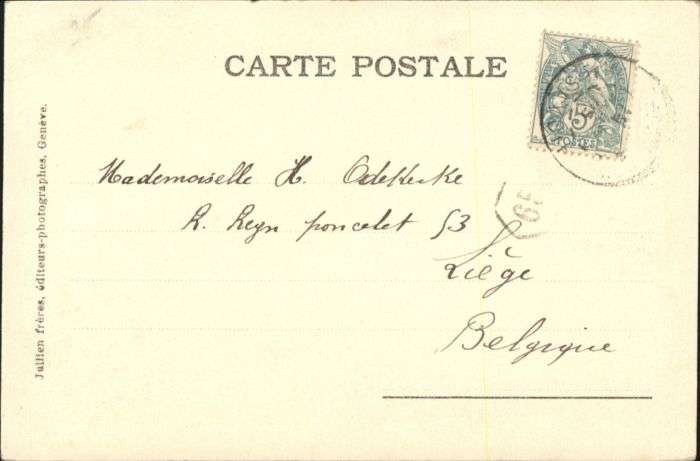 CARTE POSTALE
5
POSTES
Mademoiselle H. Odekerke
R. Regn poncelet 53
65
Liège
Belgique
Jullien frères, éditeurs-photographes, Genève.